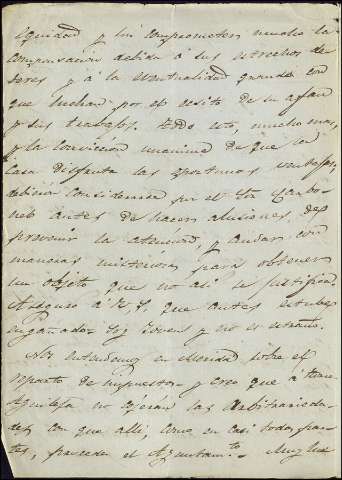 equidad y sin comprometer mucho la
compensación debida á sus estrechos de
beres y á la eventualidad grande con
que luchan por el éxito de su afan
y sus trabajos. Todo esto, mucho mas,
y la conviccion unanime de que la
casa disfruta las oportunas ventajas,
debiera considerarse por el Sor
antes de hacer alusiones,
prevenir la atencion, y andar con
maneras misteriosas para obtener
un objeto que no asi se justifica.
Aseguro á V. S. que antes estube
engañado. Soy joven y no es estraño.
Nos entendemos en verdad sobre el
reparto de impuestos y creo que á
no ejercen las arbitrarieda-
des con que alli, como en casi todas par-
tes, procede el Ayuntamto. Muy